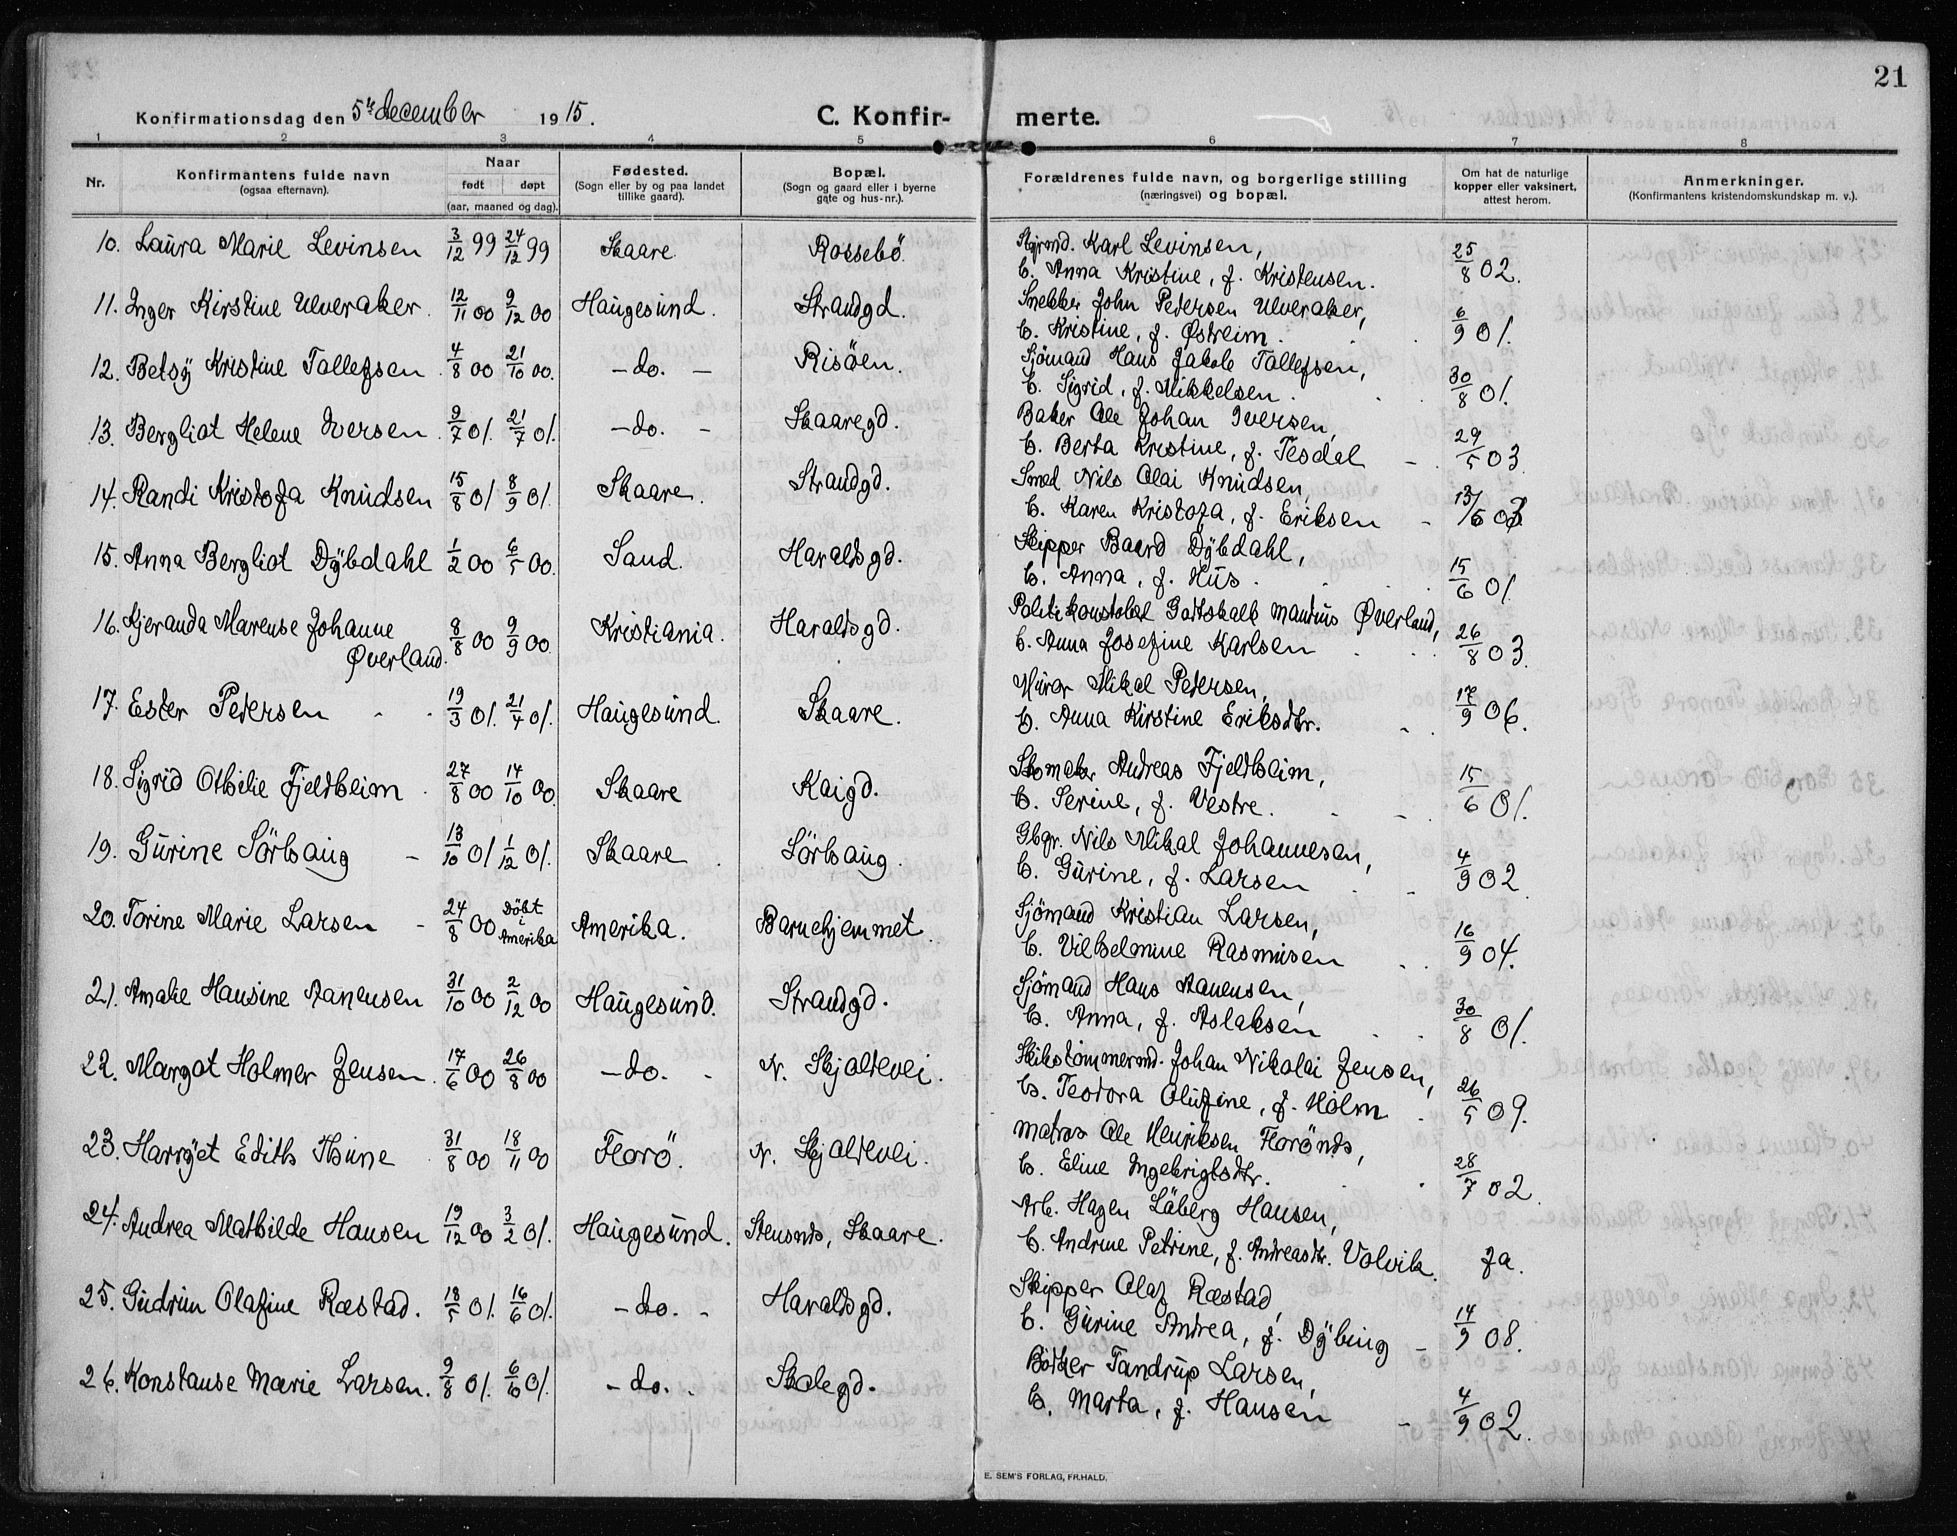 21
Konfirmationsdag den 5te december 1915.
C. Konfirmerte.
1 2 3 4 5 6 7 8
Nr.
Konfirmantens fulde navn
(ogsaa efternavn).
Naar
født døpt
(aar, maaned og dag).
Fødested.
(Sogn eller by og paa landet
tillike gaard).
Bopæl.
(Sogn og gaard eller i byerne
gate og hus-nr.).
Forældrenes fulde navn, og borgerlige stilling
(næringsvei) og bopæl.
Om hat de naturlige
kopper eller vaksinert,
attest herom.
Anmerkninger.
(Konfirmantens kristendomskundskap m. v.).
10. Laura Marie Levinsen 3/12 99 24/12 99 Skaare Rossebö. Styrmd. Karl Levinsen,
C. Anna Kristine, f. Kristensen. 25/8 02.
11. Inger Kirstine Ulveraker. 12/11 00 9/12 00 Haugesund. Strandgd. Snekker John Petersen Ulveraker,
C. Kristine, f. Østreim. 6/9 01.
12. Betsy Kristine Tollefsen 4/8 00 21/10 00. -do.- Risöen. Sjömand Hans Jakob Tollefsen,
C. Sigrid, f. Mikkelsen. 30/8 01.
13. Bergliot Helene Iversen 9/7 01. 21/7 01. -do.- Skaaregd. Baker Ole Johan Iversen,
C. Berta Kristine, f. Tesdal 29/5 03.
14. Randi Kristofa Knudsen 15/8 01 8/9 01. Skaare. Strandgd. Smed Nils Olai Knudsen,
C. Karen Kristofa, f. Eriksen 13/6 03
15. Anna Bergliot Dybdahl 1/2 00 6/5 00. Sand. Haraldsgd. Skipper Baard Dybdahl,
C. Anna, f. Hus. 15/6 01.
16. Gjeranda Marense Johanne
Øverland. 8/8 00 9/9 00. Kristiania. Haraldsgd. Politikonstabel Gottskalk Mantius Øverland,
C. Anna Josefine Karlsen 26/8 03.
17. Ester Petersen 19/3 01. 21/4 01. Haugesund. Skaare. Murer Mikal Petersen,
C. Anna Kirstine Eriksdtr. 17/9 06.
18. Sigrid Othilie Fjeldheim 27/8 00 14/10 00. Skaare Kaigd. Skomaker Andreas Fjeldheim,
C. Serine, f. Vestre. 15/6 01.
19. Gurine Sörhaug 13/10 01 1/12 01. Skaare Sörhaug. Gbgr. Nils Mikal Johannesen,
C. Gurine, f. Larsen 4/9 02
20. Torine Marie Larsen 24/8 00 Döbt
i
Amerika Amerika. Barnehjemmet. Sjömand Kristian Larsen,
C. Vilhelmine Rasmusen 16/9 04.
21. Amalie Hansine Aanensen 31/10 00 2/12 00 Haugesund. Strandgd. Sjömand Hans Aanensen,
C. Anna, f. Aslaksen 30/8 01.
22. Margot Holmer Jensen. 17/6 00 26/8 00 -do.- N. Skjoldevei. Skibstömmermd. Johan Nikolai Jensen,
C. Teodora Olufine, f. Holm 26/5 09.
23. Harryet Edith Thune 31/8 00 18/11 00 Florö. N. Skjoldevei. Matros Ole Henriksen Florönds,
C. Eline Ingebrigtsdtr. 28/7 02.
24. Andrea Mathilde Hansen 19/12 00 3/2 01. Haugesund. Stensnds, Skaare. Arb. Hagen Löberg Hansen,
C. Andrine Petrine, f. Andreasdtr. Valvik. fa.
25. Gudrun Olafine Røstad. 18/5 01. 16/6 01. -do.- Haraldsgd. Skipper Olaf Røstad,
C. Gurine Andrea, f. Dybing 14/9 08.
26. Konstanse Marie Larsen. 9/8 01. 6/10 01. -do.- Skolegd. Bödker Tandrup Larsen,
C. Marta, f. Hansen 4/9 02.
E. SEM'S FORLAG, FR.HALD.